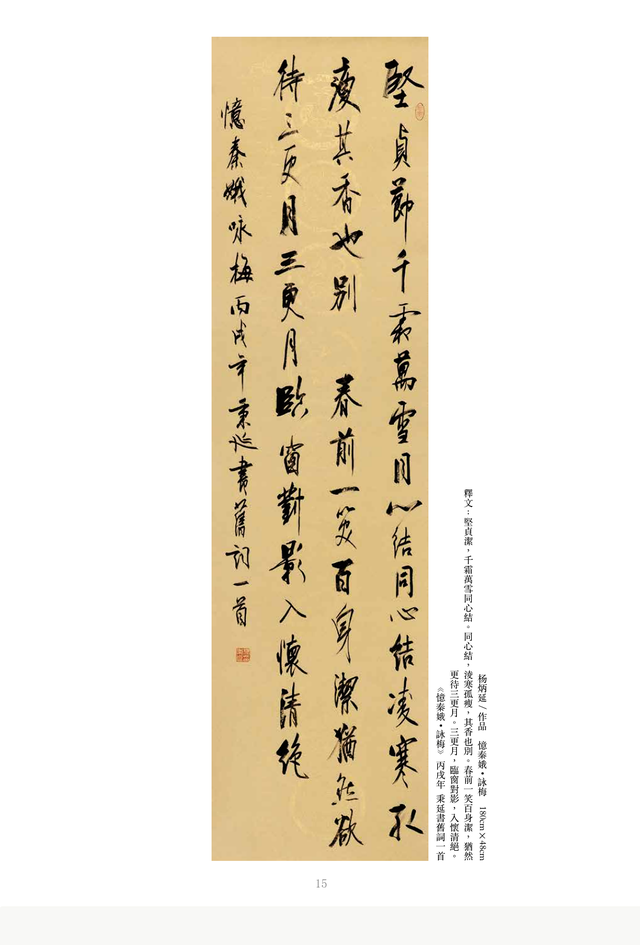 堅貞節千霜萬雪同心結同心結凌寒孤
瘦其香也别 春前一笑百身潔猶然欲
待三更月三更月臨窗對影入懷清絶
憶秦娥咏梅丙戌年秉延書舊詞一首
杨炳延/作品 憶秦娥·詠梅 180cm×48cm
釋文：堅貞潔，千霜萬雪同心結。同心結，淩寒孤瘦，其香也別。春前一笑百身潔，猶然
更待三更月。三更月，臨窗對影，入懷清絕。
《憶秦娥·詠梅》 丙戌年 秉延書舊詞一首
15